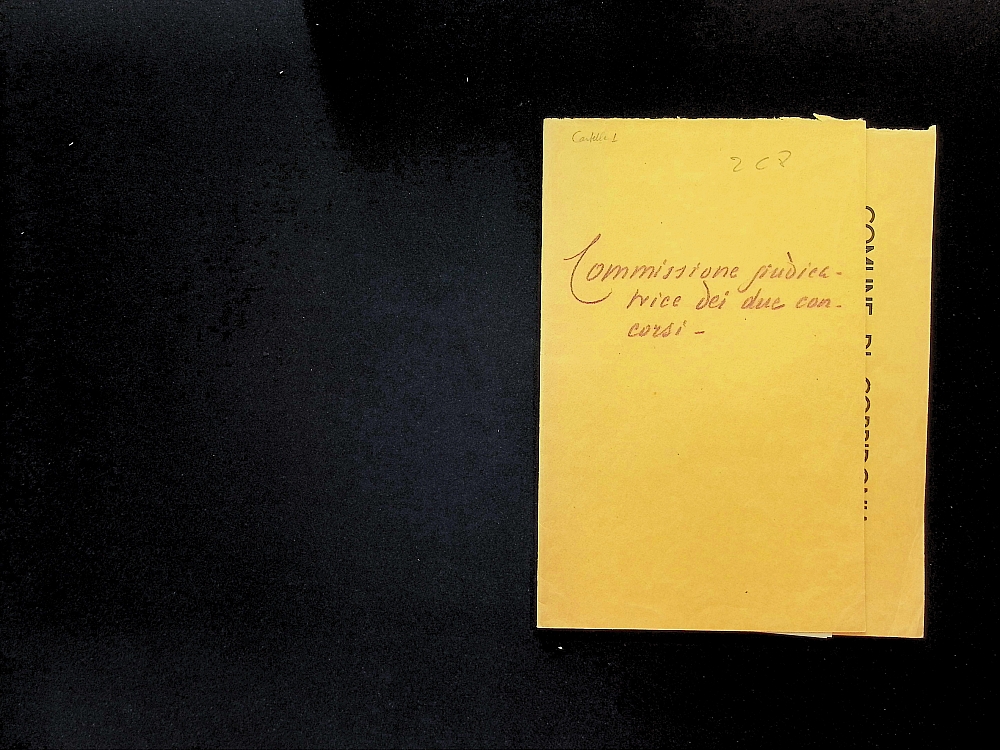 Cartella 1
2 C 7
Commissione giudica-
trice dei due con-
corsi -
COMUNE DI CORRIDONIA